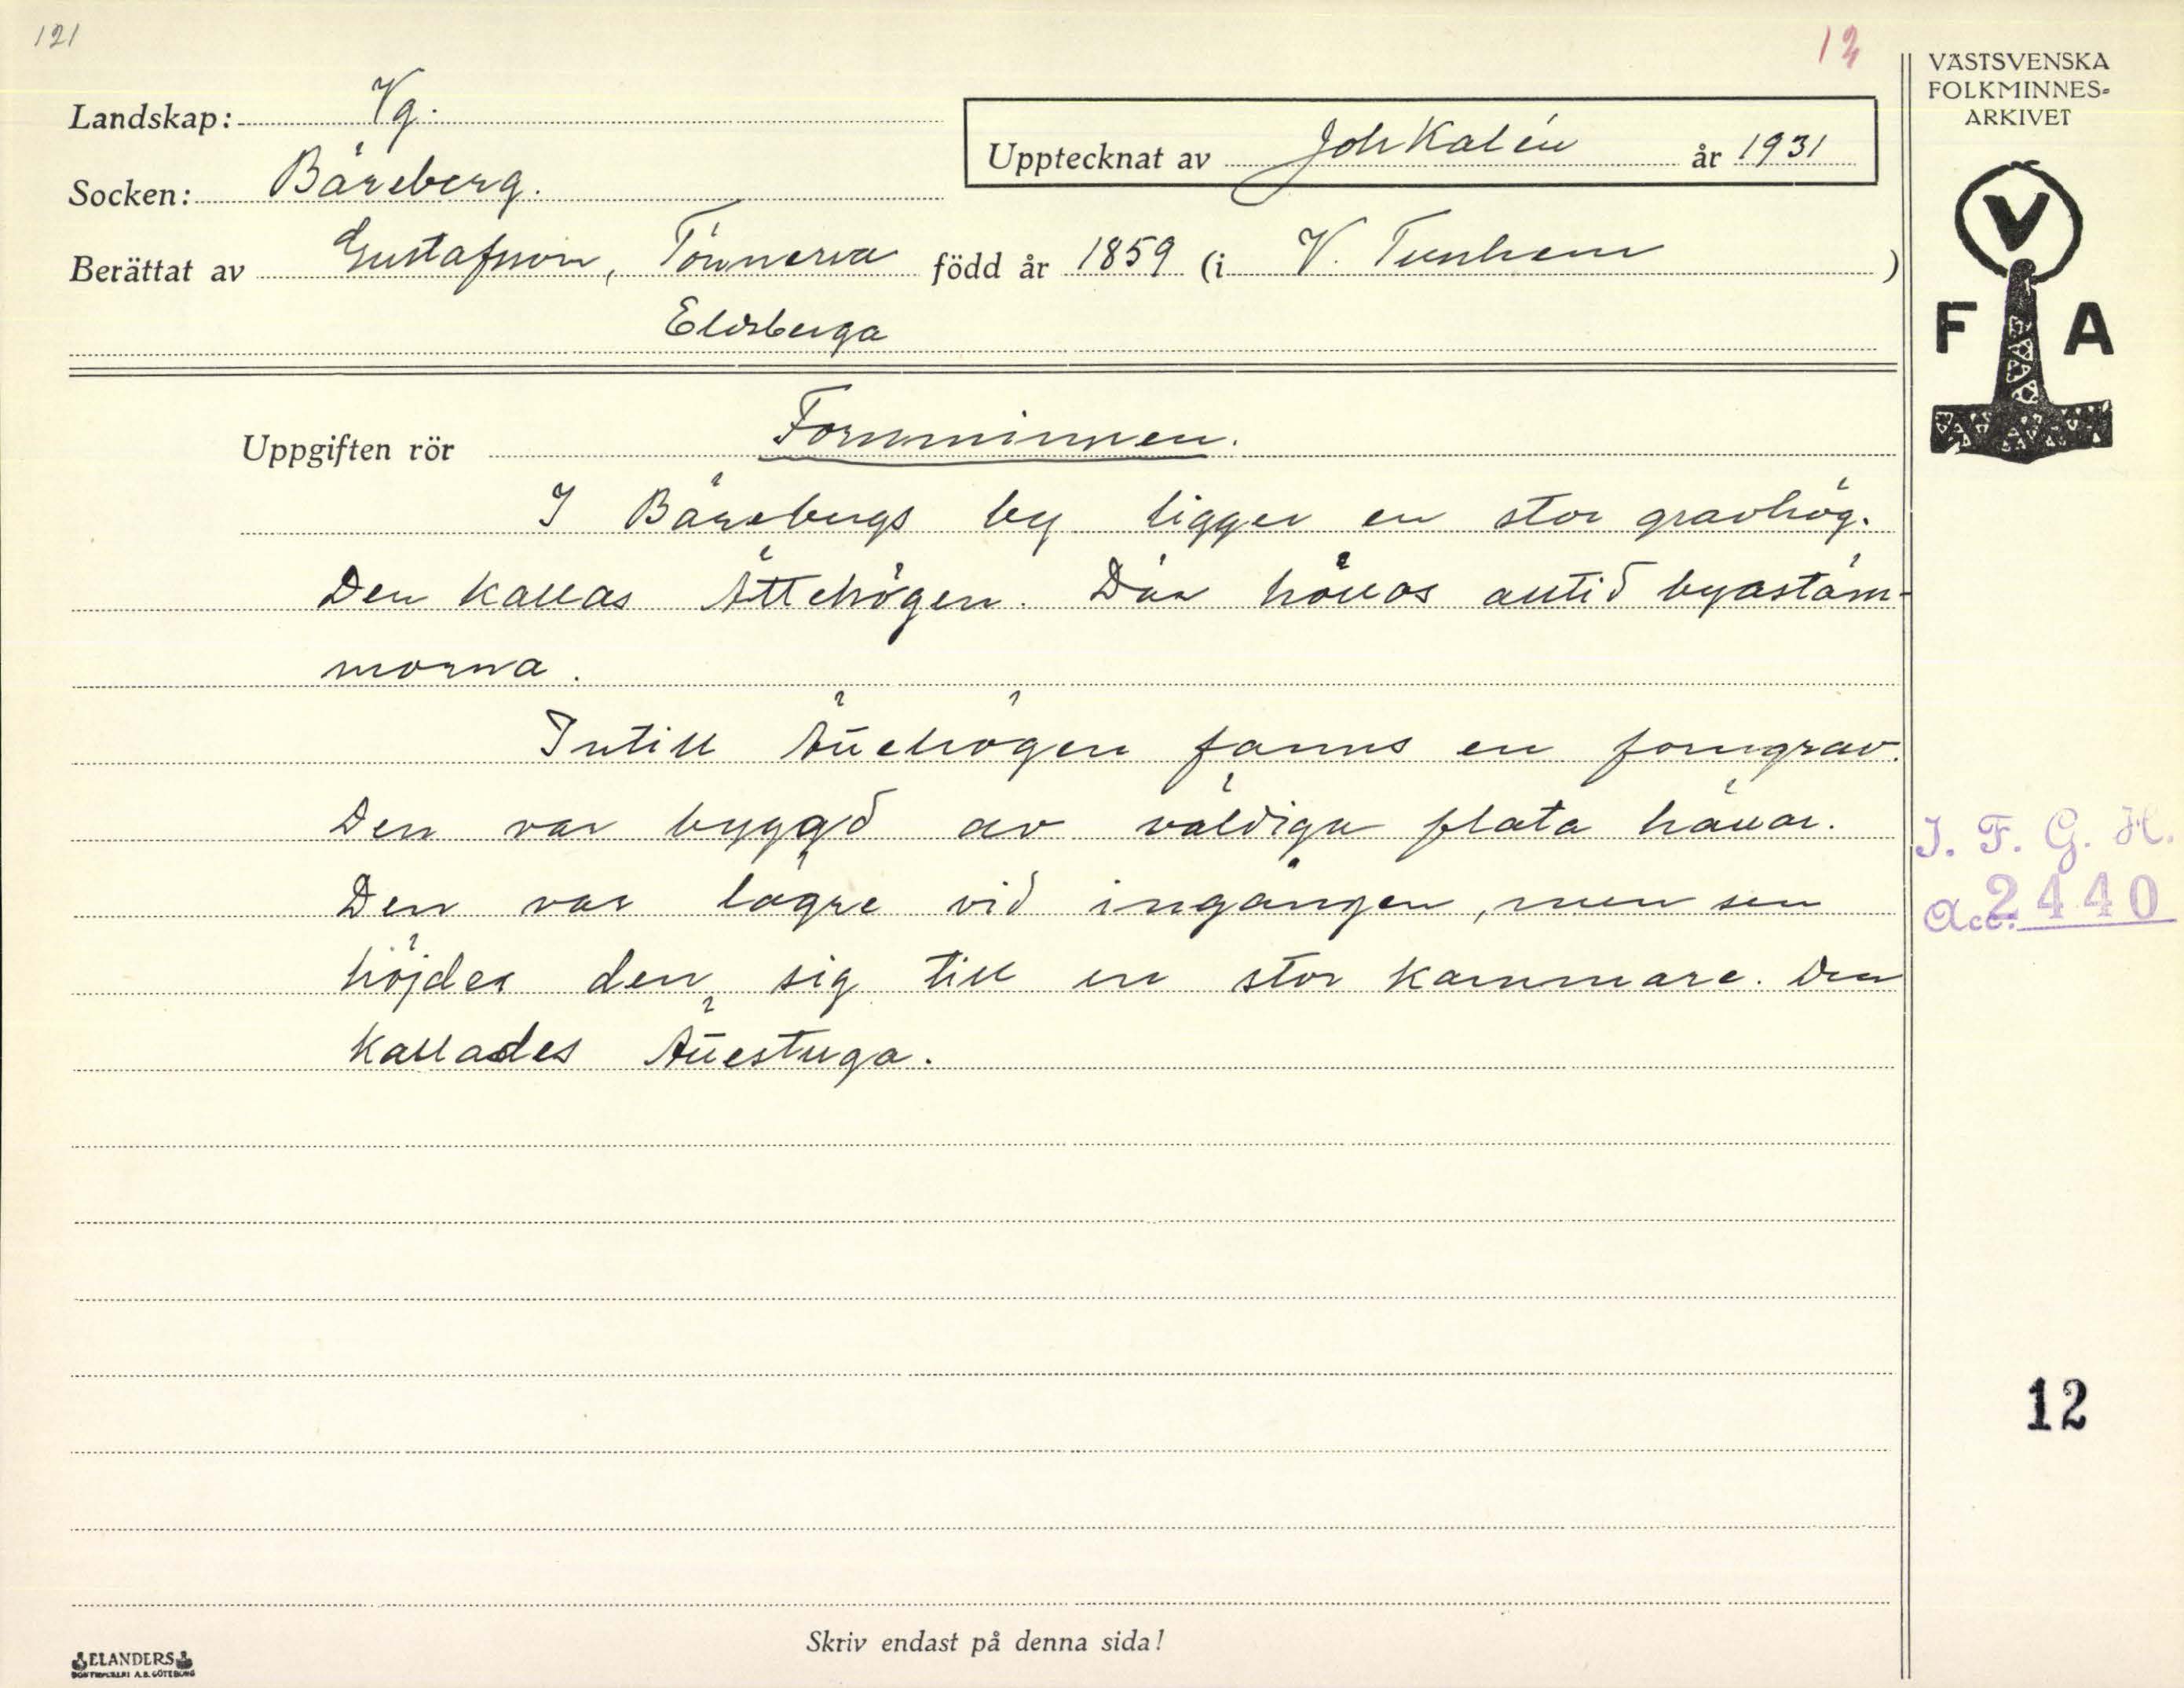 121
12
VÄSTSVENSKA
FOLKMINNES-
ARKIVET
Landskap: Vg.
Upptecknat av Joh Kalén år 1931
Socken: Bäreberg.
Berättat av Gustafsson, Tönnersa född år 1859 (i V. Tunhem )
Elisberga
V
F A
Uppgiften rör Fornminnen.
I Bärebergs by ligger en stor gravhög.
Den kallas Ättehögen. Där hållas alltid byastäm-
morna.
Intill Ättehögen fanns en forngrav.
Den var byggd av väldiga flata hällar.
Den var lägre vid ingången, men sen
höjdes den sig till en stor kammare. Den
kallades Ättestuga.
I. F. G. H.
Acc. 2440
12
Skriv endast på denna sida!
ELANDERS
BOKTRYCKERI A.B. GÖTEBORG